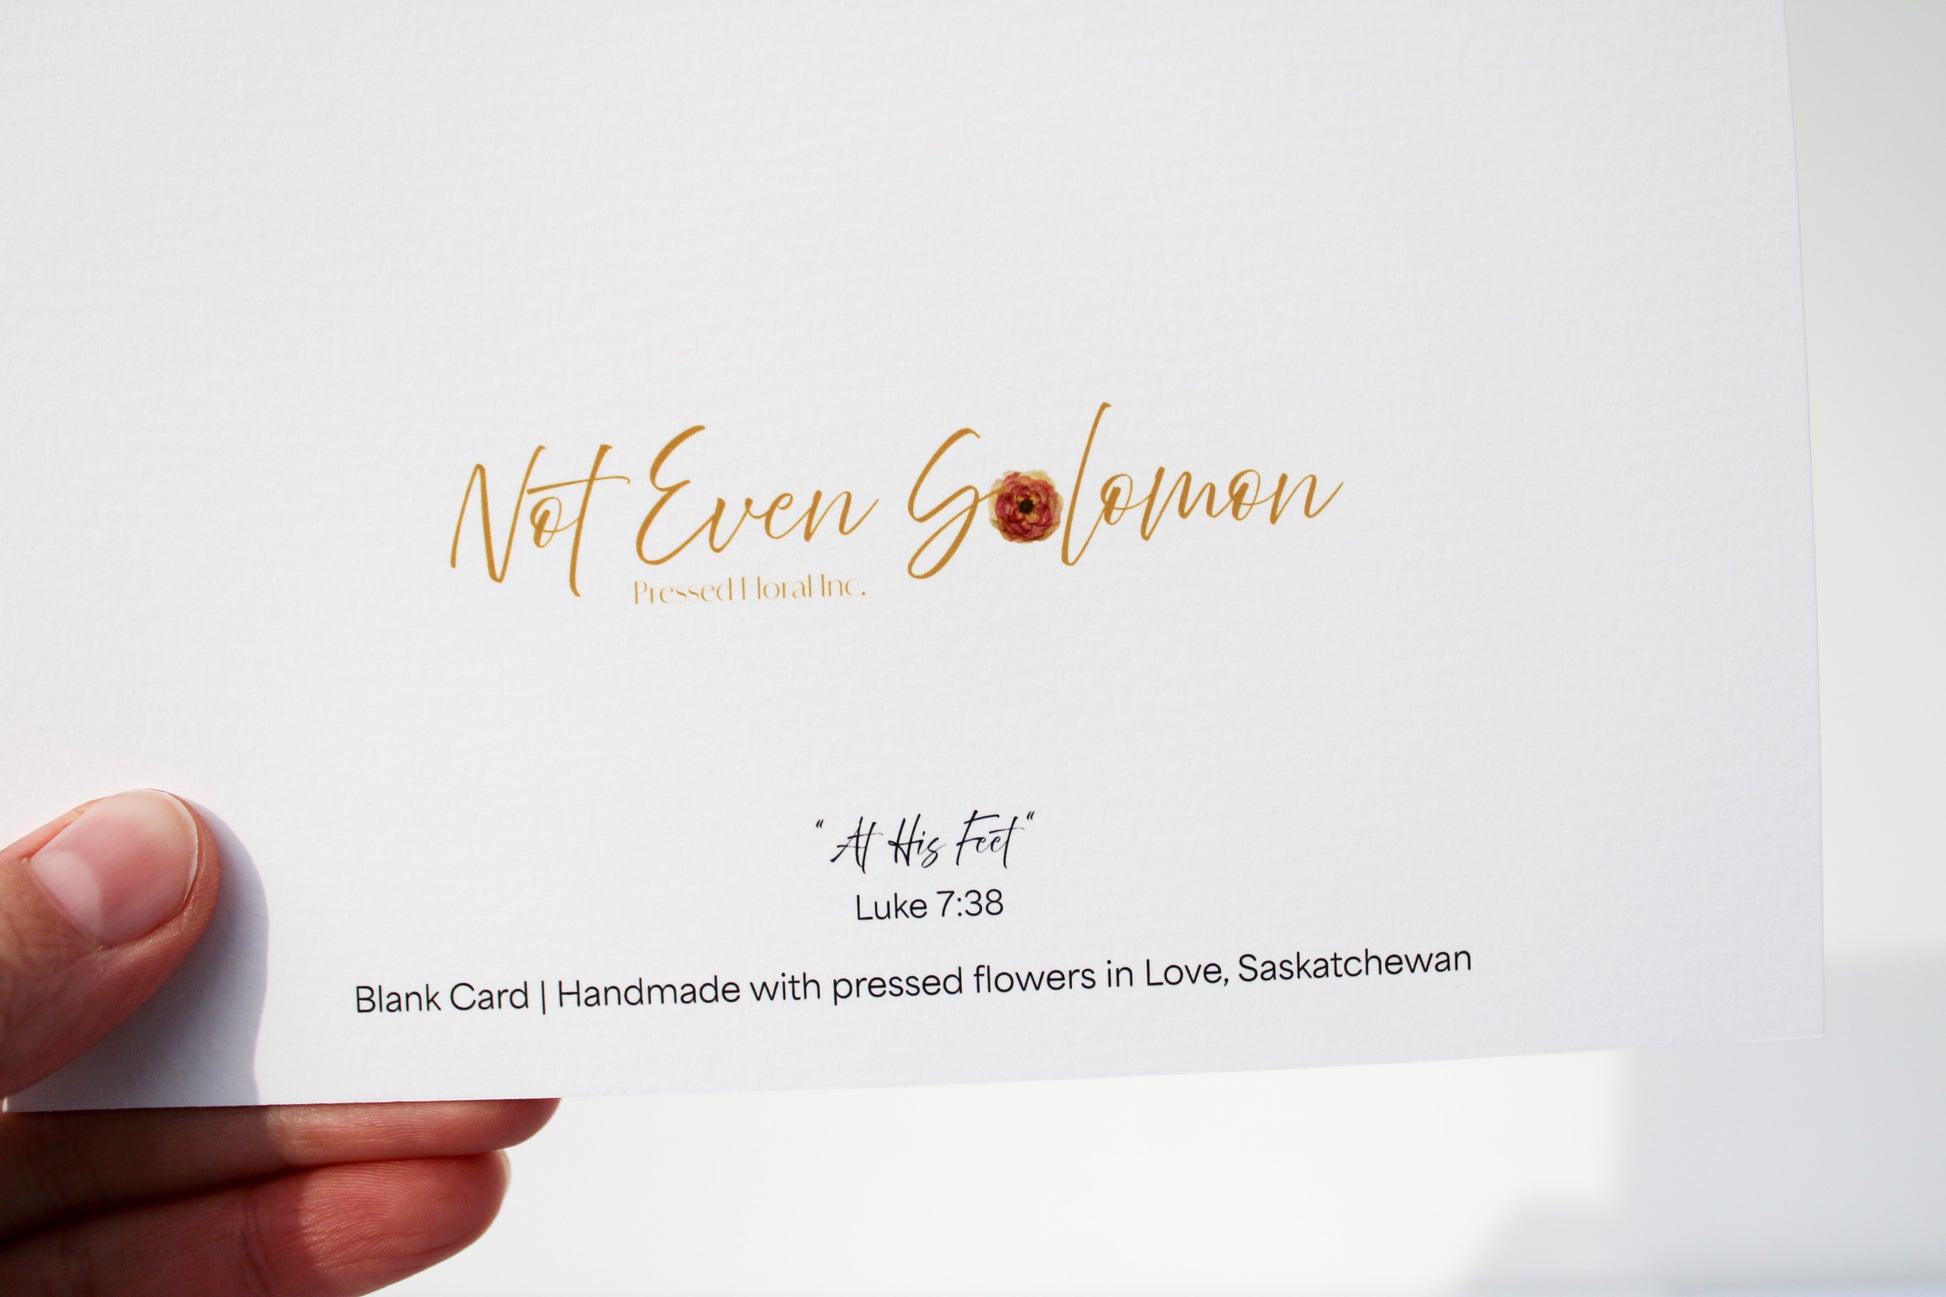 Not Even Solomon
Pressed Floral Inc.
"At His Feet"
Luke 7:38
Blank Card | Handmade with pressed flowers in Love, Saskatchewan